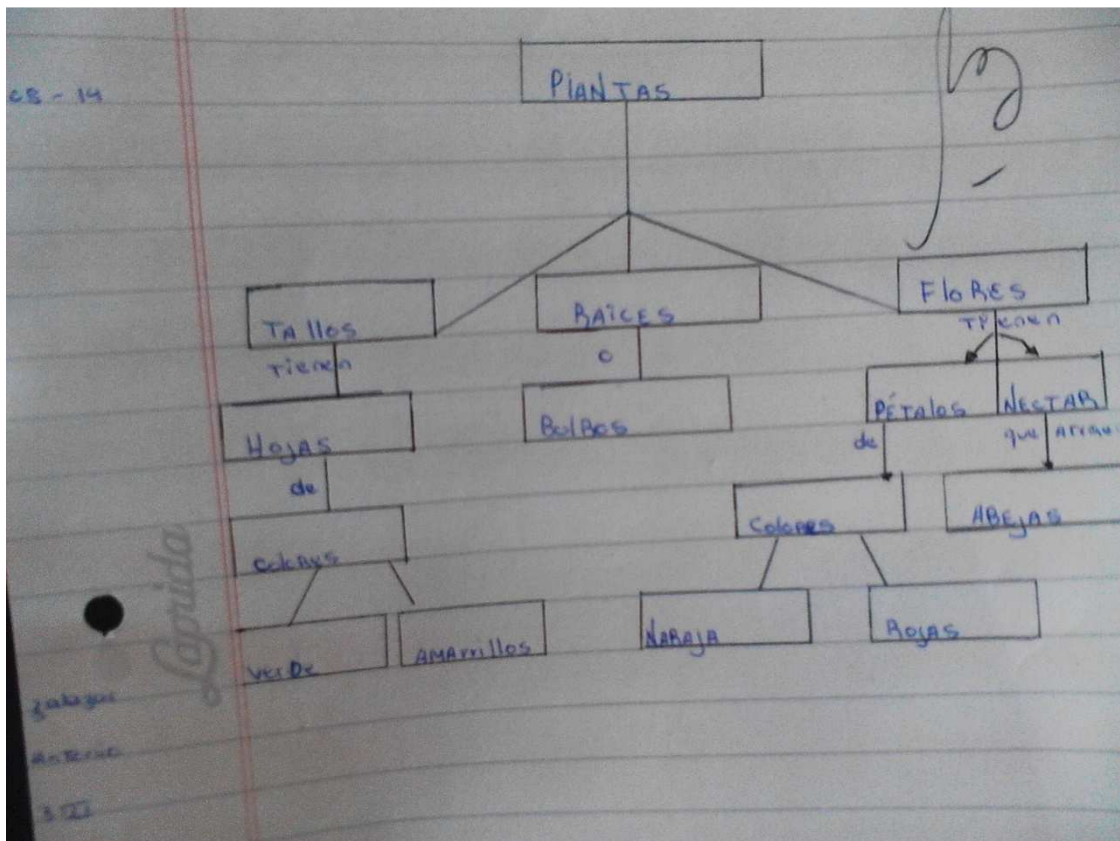 PlANTAS
TAllos
RAÍCES
FloRES
Tienen
o
Tienen
HOJAS
BolBos
PÉTAlos
NÉCTAR
de
de
que
Colores
Colores
ABEJAS
VerDe
AMArrillos
NARAJA
ROJAS
Laprida